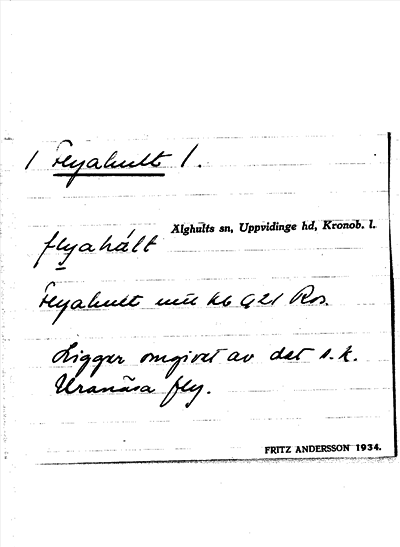 / Flyahult /.
Älghults sn, Uppvidinge hd, Kronob. l.
flyahált
Flyahult utj kb 921 Ros.
Ligger omgivet av det s.k.
Uranäsa fly.
FRITZ ANDERSSON 1934.